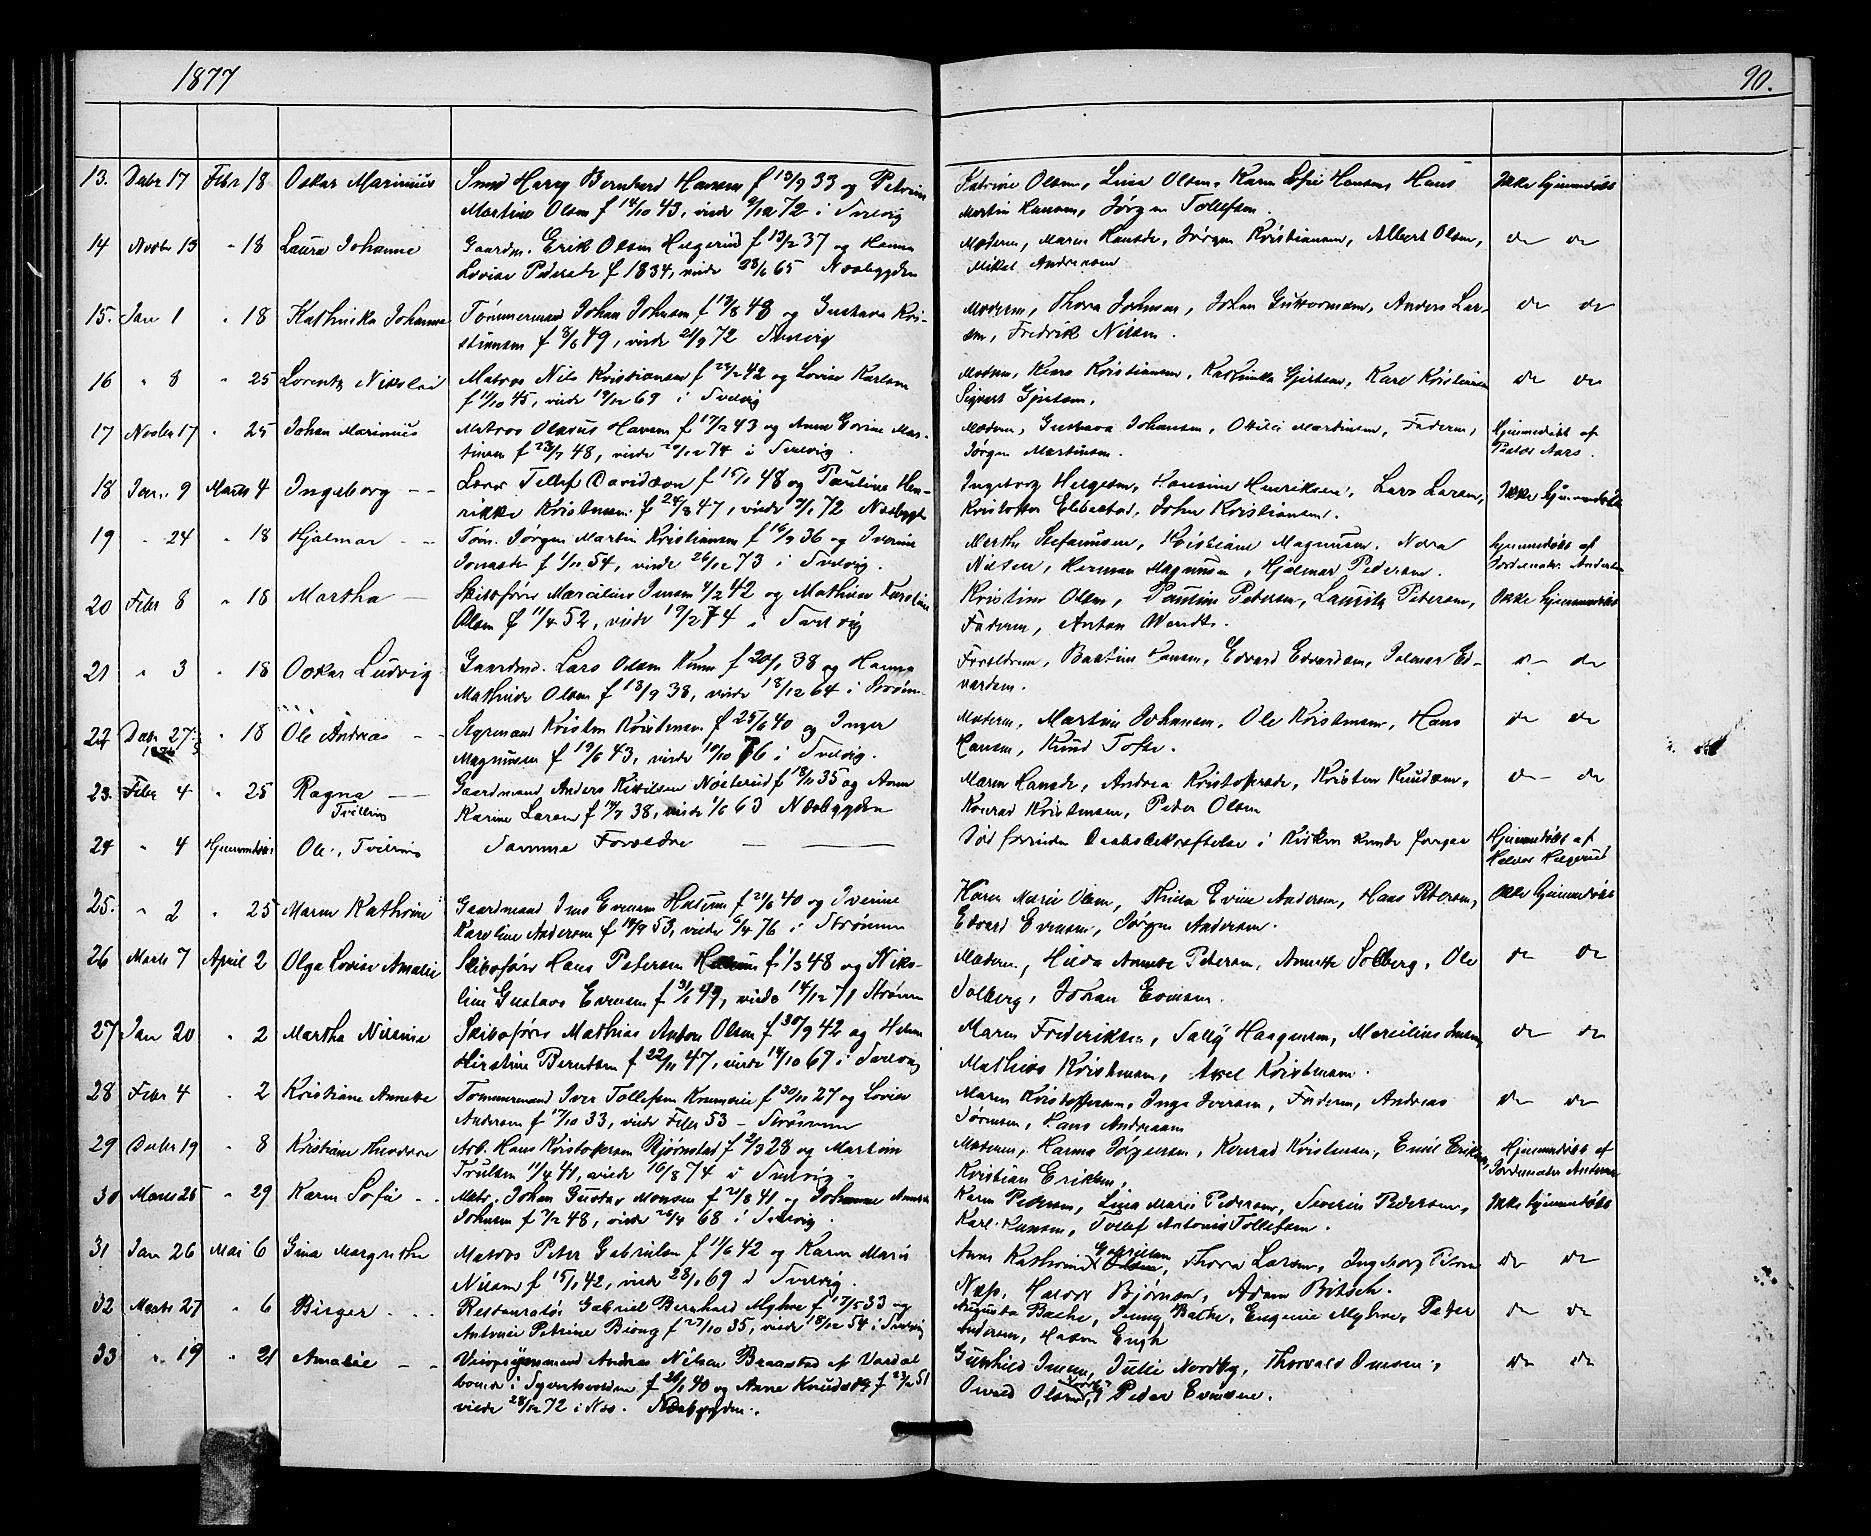 1877
90.
13. Decbr 17 Febr 18 Oskar Marinius Smed Harry Bernhard Hansen f 13/9 33 og Petrine Katrine Olsen, Lina Olsen, Karen Sofie Hansen, Hans Ikke hjemmedøbt
Martine Olsen f 14/10 43, viede 2/12 72 i Svelvig Martin Hansen, Jørgen Tollefsen.
14 Novbr 13 " 18 Laura Johanne Gaardm. Erik Olsen Helgerud f 13/2 37 og Hanna Moderen, Maren Hansdr, Jørgen Kristiansen, Albert Olsen, do do
Lovise Pedersdr f 1834, viede 28/6 65 Næsbygden Mikel Andresen
15. Jan 1 " 18 Kathinka Johanne Tømmermand Johan Johnsen f 19/8 48 og Gustava Kri- Moderen, Thora Johnsen, Johan Guttormsen, Anders Lar- do do
stiansen f 8/6 49, viede 21/9 72 Svelvig sen, Fredrik Nilsen.
16 " 8 " 25 Lorentz Nikolai Matros Nils Kristiansen f 24/2 42 og Lovise Karlsen Moderen, Kristiansen, Kathinka Gjertsen, Karl Kristiansen do do
f 11/10 45, viede 19/12 69 i Svelvig Sigvart Gjertsen.
17 Novbr 17 " 25 Johan Marinius Matros Olavus Hansen f 17/2 43 og Anne Gorine Mar- Moderen, Gustava Johansen, Otilie Martinsen, Faderen, Hjemmedøbt af
tinsen f 23/7 48, viede 20/12 74 i Svelvig. Jørgen Martinsen. Aars.
18 Jan. 9 Marts 4 Ingeborg — — Lærer Tellef Davidsen f 15/1 48 og Pauline Hen- Ingeborg Helgesen, Hansine Henriksen, Lars Larsen, Ikke hjemmedøbt
rikke Kristensen f 24/8 47, viede 2/1 72 Næsbygd Kristoffer Ellestad, Johan Kristiansen.
19 " 24 " 18 Hjalmar — — Tøm. Jørgen Martin Kristiansen f 16/9 36 og Iverine Marthe Stefansen, Kristiane Magnusen, Nora hjemmedøbt af
Jonasdr f 1/11 54, viede 26/12 73 i Svelvig. Nilsen, Herman Magnusen, Hjalmar Pedersen. Jordemoder Andersen
20 Febr 8 " 18 Martha — Skibsfører Marcilius Jensen 4/2 42 og Mathilde Karoline Kristine Olsen, Pauline Pedersen, Lauritz Petersen, Ikke hjemmedøbt
Olsen f 11/4 52, viede 19/2 74 i Svelvig Faderen, Anton Wendt.
21 " 3 " 18 Oskar Ludvig Gaardmd. Lars Olsen f 20/1 38 og Hanna Forældrene, Hansen, Edvard Edvardsen, Ed- do do
Mathilde Olsen f 18/9 38, viede 18/12 64 i Strøm. vardsen.
22 Decbr 27 " 18 Ole Andreas — Styrmand Kristen Kristensen f 25/6 40 og Inger Moderen, Martine Johansen, Ole Kristensen, Hans do do
1876 Magnusen f 19/6 43, viede 10/10 76 i Svelvig. Hansen, Knud Tofte.
23. Febr 4 " 25 Ragna — — Gaardmand Anders Nøsterud f 18/11 35 og Anne Maren Hansdr, Andrea Kristofersdr, Kristen Knudsen, do do
Tvilling Karine Larsen f 19/7 38, viede 1/6 63 Næsbygden Konrad Kristensen, Peder Olsen
24 " 4 Hjemmedøbt Ole, Tvilling Samme Forældre — — Død førinden Daabsbekræftelse i Kirken kunde foregaa Hjemmedøbt af
Helgerud
25. " 2 " 25 Maren Kathrine Gaardmand Jens Evensen f 21/6 40 og Iverine Karen Marie Olsen, Evine Andersen, Hans Petersen, Ikke hjemmedøbt
Karoline Andersen f 18/9 53, viede 6/4 76 i Strømm Edvard Evensen, Jørgen Andersen.
26 Marts 7 April 2 Olga Lovise Amalie Skibsfører Hans Petersen f 1/3 48 og Niko- Moderen, Hilda Annette Petersen, Annette Solberg, Ole do do
line Gustava Evensen f 31/1 49, viede 14/12 71 Strømm Solberg, Johan Evensen.
27 Jan 20 " 2 Martha Nilsine Skibsfører Mathias Anton Olsen f 30/9 42 og Helene Maren Frederiksen, Sally Haagensen, Marcilius Jensen, do do
Kirstine Berntsen f 22/11 47, viede 14/10 67 i Svelvig Mathias Kristensen, Axel Kristensen.
28 Febr 4 " 2 Kristiane Annette Tømmermand Iver Tollefsen f 30/11 27 og Lovise Maren Kristoffersen, Inga Iversen, Faderen, Andreas do do
Andersen f 17/10 33, viede Febr 53 — Strømm Sørensen, Hans Andreasen
29 Decbr 19 " 8 Kristiane Theodore Arb. Hans Kristofersen Bjørnstad f 2/3 28 og Martine Moderen, Hanna Jørgensen, Konrad Kristensen, Emil Eriksen, Hjemmedøbt af
Trulsen 11/4 41, viede 16/8 74 i Svelvig Kristian Eriksen, Jordemoder Andersen
30 Marts 25 " 29 Karen Sofie — Matr. Johan Gustav Monsen f 21/8 41 og Johanne Karen Pedersen, Lina Marie Pedersen, Severin Pedersen, Ikke hjemmedøbt
Johnsen f 7/2 48, viede 26/4 68 i Svelvig. Karl Hansen, Tollef Antonis Tollefsen.
31 Jan 26 Mai 6 Gina Margrethe Matros Peter Gabrielsen f 11/6 42 og Karen Marie Anne Kathrine Gabrielsen, Thora Larsen, Ingeborg do do
Nilsen f 15/1 42, viede 28/1 69 i Svelvig. Næss, Bjørnsen, Bitsch.
32 Marts 27 " 6 Birger — Restauratør Gabriel Bernhard Myhre f 17/5 33 og Augusta Bache, Jenny Bache, Eugenie Myhre, Peder do do
Antonie Petrine Biong f 27/10 35, viede 18/12 54 i Svelvig Andersen, Engh
33 " 19 " 21 Amalie — — Andreas Nilsen Braastad af Vardal Gunhild Jensen, Julie Nordby, Thorvald Jensen, do do
boende i f 26/1 40 og Anne Knudsdtr f 23/2 51 Olsen, Peder Evensen.
viede 28/12 72 i Næs. Næsbygden.